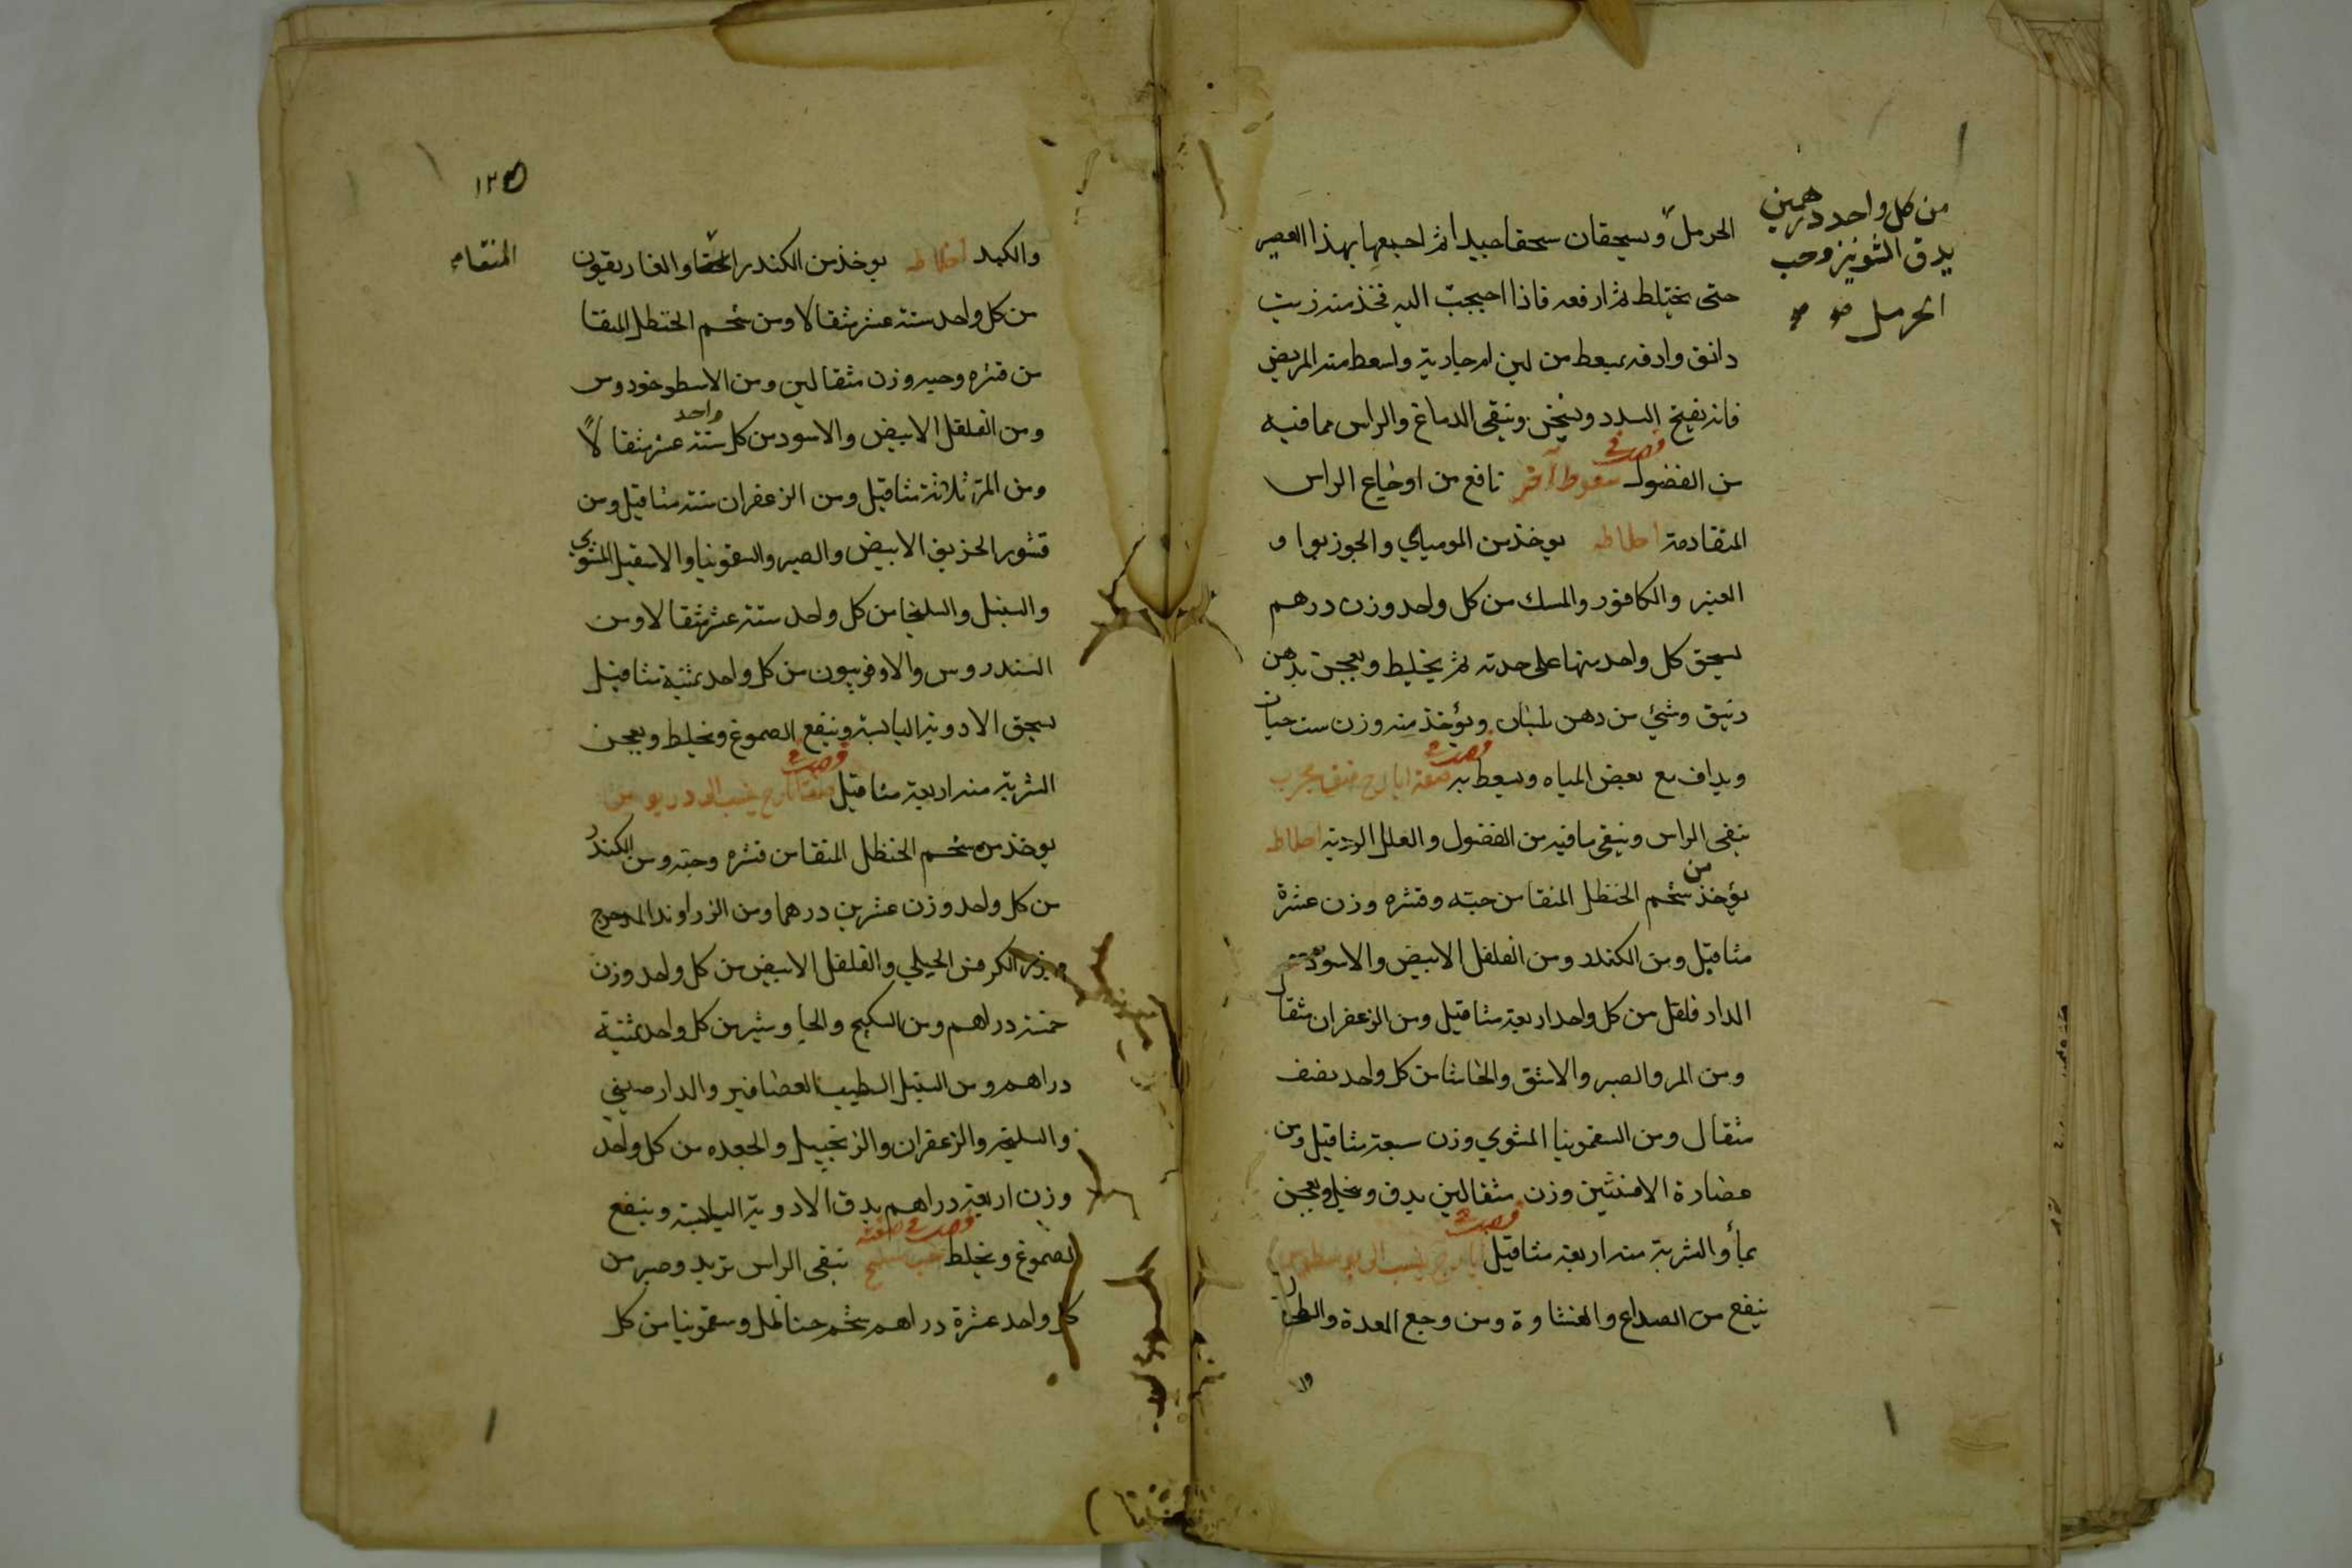 من كل واحد درهمين
يدق الشونيز وحب
الحرمل صح
الحرمل ويسحقان سحقا جيدا ثم اجمعها بهذا العصير
حتى يختلط ثم ارفعه فاذا احتجت اليه فخذ منه زنت
دانق وادفه بمسعط من لبن ام جارية واسعط منه المريض
فانه يفتح السدد ويسخن وينقي الدماغ والراس مما فيه
من الفضول سعوط آخر نافع من اوجاع الراس
المتقادمة اخلاطه يوخذ من الموميائي والجوزبوا و
العنبر والكافور والمسك من كل واحد وزن درهم
يسحق كل واحد منها على حدته ثم يخلط ويعجن بدهن
زنبق وشئ من دهن بلسان ويؤخذ منه وزن ست حبات
ويداف مع بعض المياه ويسعط به صفة ايارج فيقرا مجرب
ينقي الراس وينقي ما فيه من الفضول والعلل الردية اخلاطه
يؤخذ من شحم الحنظل المنقا من حبه وقشره وزن عشرة
مثاقيل ومن الكندر ومن الفلفل الابيض والاسود
الدار فلفل من كل واحد اربعة مثاقيل ومن الزعفران مثقا
ومن المر والصبر والاشق والحاشا من كل واحد نصف
مثقال ومن السقمونيا المشوي وزن سبعة مثاقيل ومن
عصارة الافسنتين وزن مثقالين يدق وينخل ويعجن
بمأ والشربة منه اربعة مثاقيل ايارج ينسب الى
ينفع من الصداع والغشاوة ومن وجع المعدة والطحال
١٢٥
المنقا
والكبد اخلاطه يوخذ من الكندر والغاريقون
من كل واحد ستة عشر مثقالا ومن شحم الحنظل المنقا
من قشره وحبه وزن مثقالين ومن الاسطوخودوس
ومن الفلفل الابيض والاسود من كل واحد ستة عشر مثقالاً
ومن المر ثلاثة مثاقيل ومن الزعفران ستة مثاقيل ومن
قشور الخربق الابيض والصبر والسقمونيا والاسقيل المشوي
والسنبل والسليخا من كل واحد ستة عشر مثقالا ومن
السندروس والاوفربيون من كل واحد ثمنية مثاقيل
يسحق الادوية اليابسة وينقع الصموغ ويخلط ويعجن
الشربة منه اربعة مثاقيل صفة ايارج ينسب الى
يوخذ من شحم الحنظل المنقا من قشره وحبه ومن الكندر
من كل واحد وزن عشرين درهما ومن الزراوند المدحرج
وبزر الكرفس الجبلي والفلفل الابيض من كل واحد وزن
خمسة دراهم ومن السكبيج والجاوشير من كل واحد ثمنية
دراهم ومن السنبل الطيب العصافير والدارصيني
والسليخه والزعفران والزنجبيل والجعده من كل واحد
وزن اربعة دراهم يدق الادوية اليابسة وينقع
الصموغ ويخلط صفة حب ينقي الراس تربد وصبر من
كل واحد عشرة دراهم شحم حنظل وسقمونيا من كل